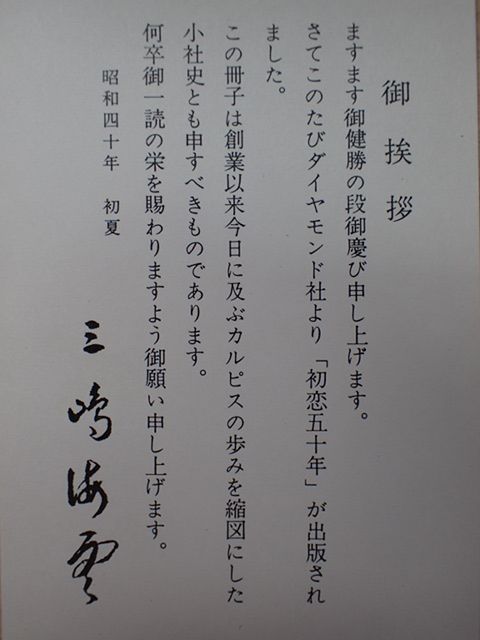 御挨拶
ますます御健勝の段御慶び申し上げます。
さてこのたびダイヤモンド社より「初恋五十年」が出版され
ました。
この冊子は創業以来今日に及ぶカルピスの歩みを縮図にした
小社史とも申すべきものであります。
何卒御一読の栄を賜わりますよう御願い申し上げます。
昭和四十年 初夏
三嶋海雲